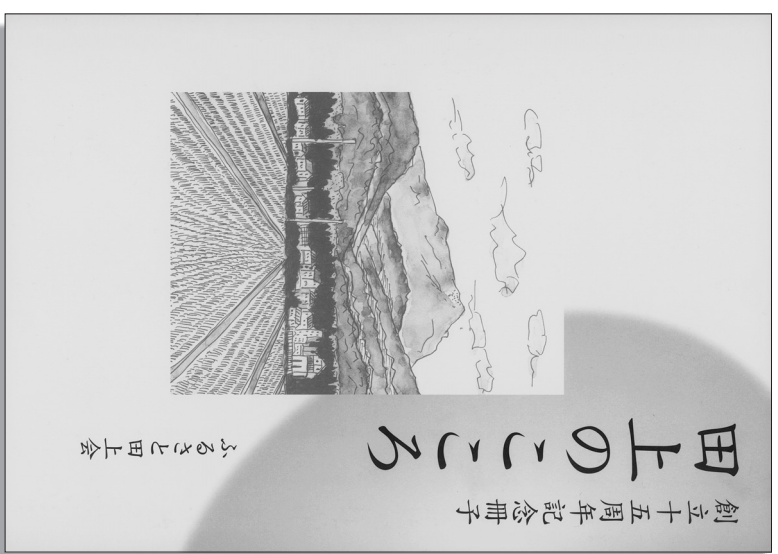 創立十五周年記念冊子
田上のこころ
ふるさと田上会